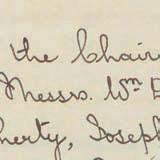 the Chair
Messrs. Wm E
herty, Joseph